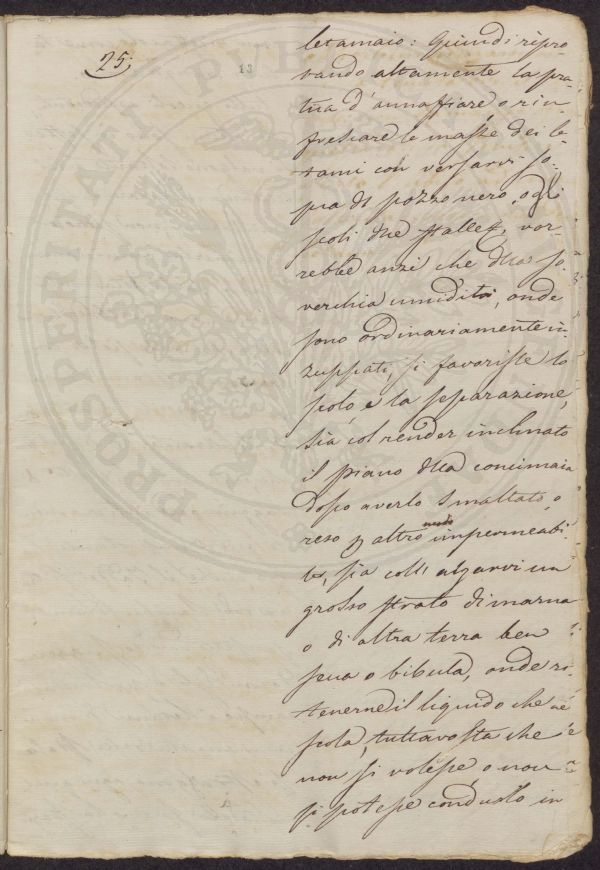 25.
13
letamaio: Quindi ripro-
vando altamente la pra-
tica d'annaffiare, o rin-
frescare le masse dei le-
tami con versarvi so-
pra di pozzo nero, o gli
scoli dlle stalle, vor-
rebbe anzi che dlla so-
verchia umidità, onde
sono ordinariamente in-
zuppati, si favorisse lo
scolo, e la separazione,
sia col render inclinato
il piano dlla concimaia
dopo averlo smaltato, o
reso altro modo impermeabi-
le, sia coll' alzarvi un
grosso strato di marna
o di altra terra ben
secca o bibula, onde ri-
tenerne il liquido che ne
scola, tuttavolta che
non si volesse, o non
si potesse condurlo in
PROSPERITATI PUBLICAE